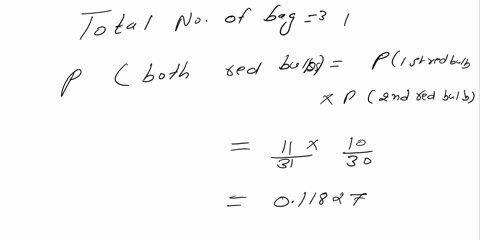 Total No. of bag = 31
P (both red bulbs) = P(1st red bulb
× P (2nd red bulb)
= 11/31 × 10/30
= 0.11827